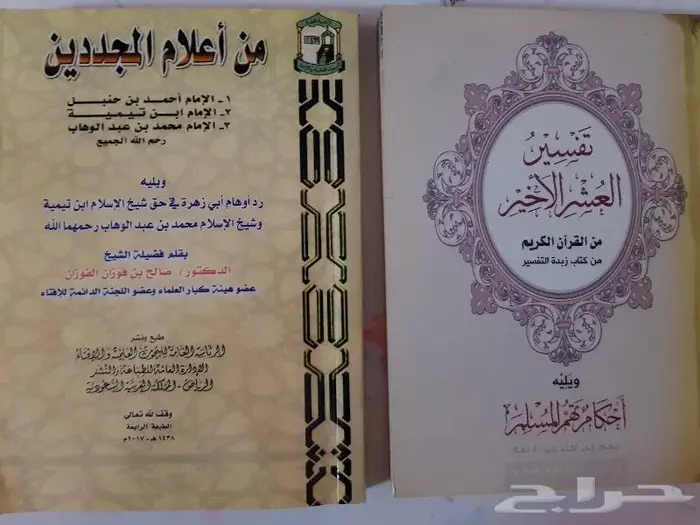 من أعلام المجددين
١ - الإمام أحمد بن حنبل
٢ - الإمام ابن تيمية
٣ - الإمام محمد بن عبد الوهاب
رحم الله الجميع
ويليه
رد أوهام أبي زهرة في حق شيخ الإسلام ابن تيمية
وشيخ الإسلام محمد بن عبد الوهاب رحمهما الله
بقلم فضيلة الشيخ
الدكتور/ صالح بن فوزان الفوزان
عضو هيئة كبار العلماء وعضو اللجنة الدائمة للإفتاء
طبع ونشر
الرئاسة العامة للبحوث العلمية والإفتاء
الإدارة العامة للطباعة والنشر
الرياض - المملكة العربية السعودية
وقف لله تعالى
الطبعة الرابعة
١٤٣٨ هـ - ٢٠١٧ م
تفسير
العشر الأخير
من القرآن الكريم
من كتاب زبدة التفسير
ويليه
أحكام تهم المسلم
حراج